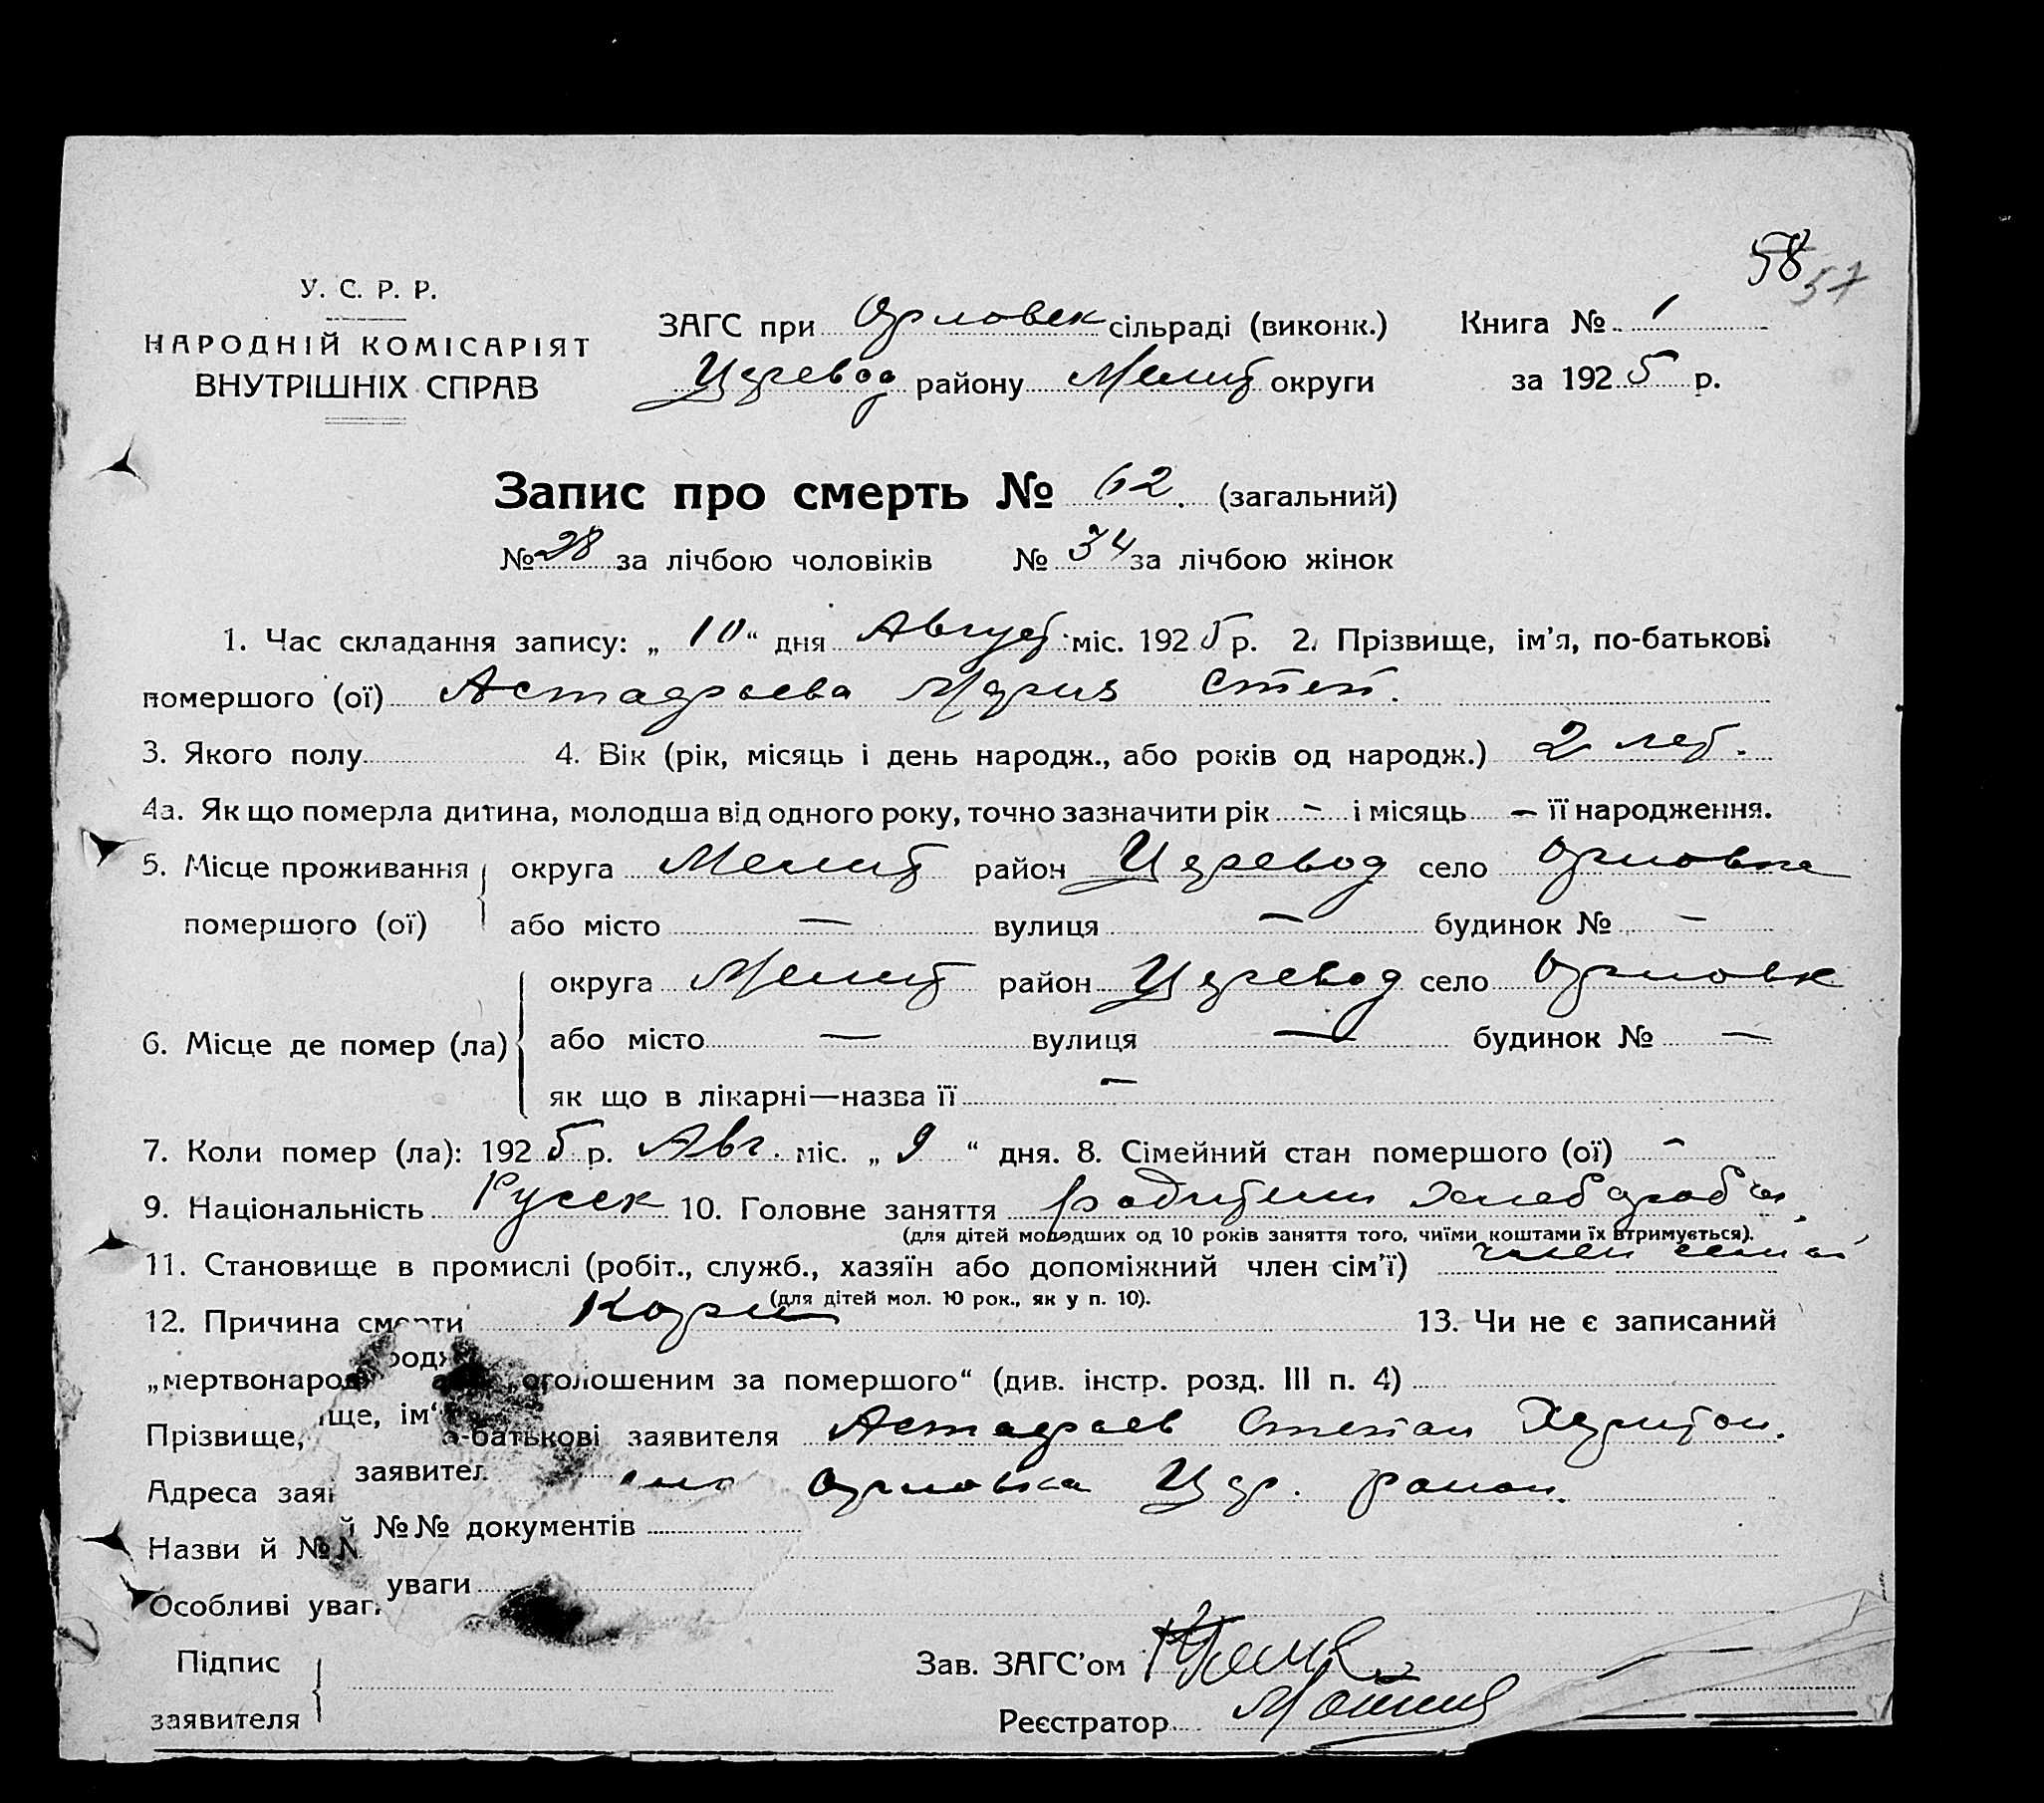 58 57
У. С. Р. Р.
НАРОДНІЙ КОМІСАРІЯТ
ВНУТРІШНІХ СПРАВ
ЗАГС при Орловск сільраді (виконк.) Книга № 1
Царевод району Мелит округи за 1925 р.
Запис про смерть № 62. (загальний)
№ 28 за лічбою чоловіків № 34 за лічбою жінок
1. Час складання запису: „ 10 “ дня Август міс. 1925 р. 2. Прізвище, ім'я, по-батькові
помершого (ої) Астафоева Мария Степ.
3. Якого полу 4. Вік (рік, місяць і день народж., або років од народж.) 2 лет.
4а. Як що померла дитина, молодша від одного року, точно зазначити рік — і місяць — її народження.
5. Місце проживання округа Мелит район Царевод село Орловка
помершого (ої) або місто — вулиця — будинок № —
округа Мелит район Царевод село Орловк
6. Місце де помер (ла) або місто — вулиця — будинок № —
як що в лікарні—назва її —
7. Коли помер (ла): 1925 р. Авг. міс. „ 9 “ дня. 8. Сімейний стан помершого (ої) —
9. Національність Русск 10. Головне заняття родители
(для дітей молодших од 10 років заняття того, чиїми коштами їх втримується).
11. Становище в промислі (робіт., служб., хазяїн або допоміжний член сім'ї) член семьи
(для дітей мол. 10 рок., як у п. 10).
12. Причина смерти Кори 13. Чи не є записаний
родж
„мертвонарод оголошеним за помершого“ (див. інстр. розд. III п. 4)
ище, ім'
Прізвище, а-батькові заявителя Астафоев Степан Харитон.
заявител
Адреса заяв Орловка Цар. район.
й №№ документів
Назви й №№
уваги
Особливі уваг
Підпис Зав. ЗАГС'ом
заявителя Реєстратор